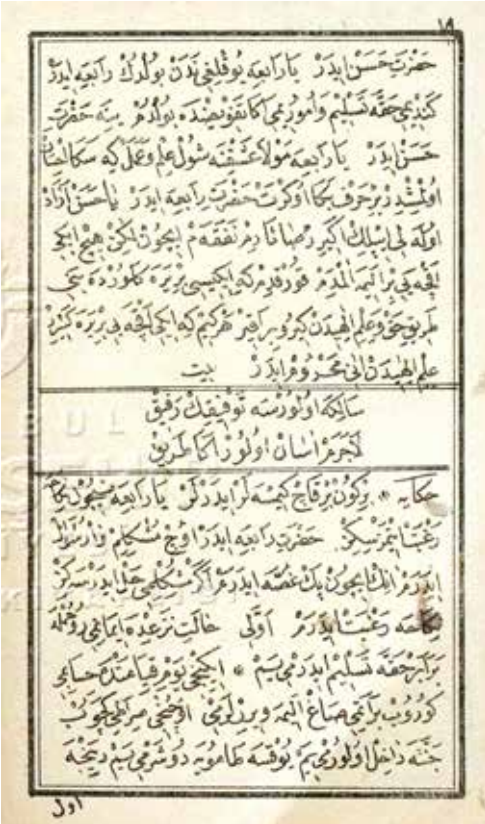 ١٩
حضرت حسن ايدر يا رابعه بو قللغى ندن بولدك رابعه ايدر
كنديمى حقه تسليم و امورمى اكا تفويضنده بولدم ينه حضرت
حسن ايدر يا رابعه مولا عشقنه شول علم و عملكه سكا احسان
اولمشدر بر حرف بكا اوكرت حضرت رابعه ايدر يا حسن آزاد
اوله لى ايپلك اكيرر صاتارم نفقهم ايچون لكن هيچ ايكى
اقچه يى بر اليمه المدم قورقدم كه ايكيسى بر يره كلور ده بنى
طريق حق و علم الهيدن كيرو براقر هر كيم كه ايكى اقچه يى بر يره كتورر
علم الهيدن انى محروم ايدر بيت
سالكه اولورسه توفيقك رفيق
لاجرم آسان اولور اكا طريق
حكايه * بركون برقاچ كيمسه لر ايدرلر يا رابعه نيچون نكاحه
رغبت ايتمزسكز حضرت رابعه ايدر اوچ مشكلم واردر الم
ايدرم انك ايچون پك غصه ايدرم اكر مشكلمى حل ايدرسه كز
نكاحه رغبت ايدرم اولكى حالت نزعده ايمانمى روحمله
برابر حقه تسليم ايدرميسم * ايكنجى يوم قيامتده حسابمى
كوروب براتمى صاغ اليمه ويررلرمى اوچنجى صراطى كچوب
جنته داخل اولورميم يوقسه طامويه دوشرميسم دينجه
اول